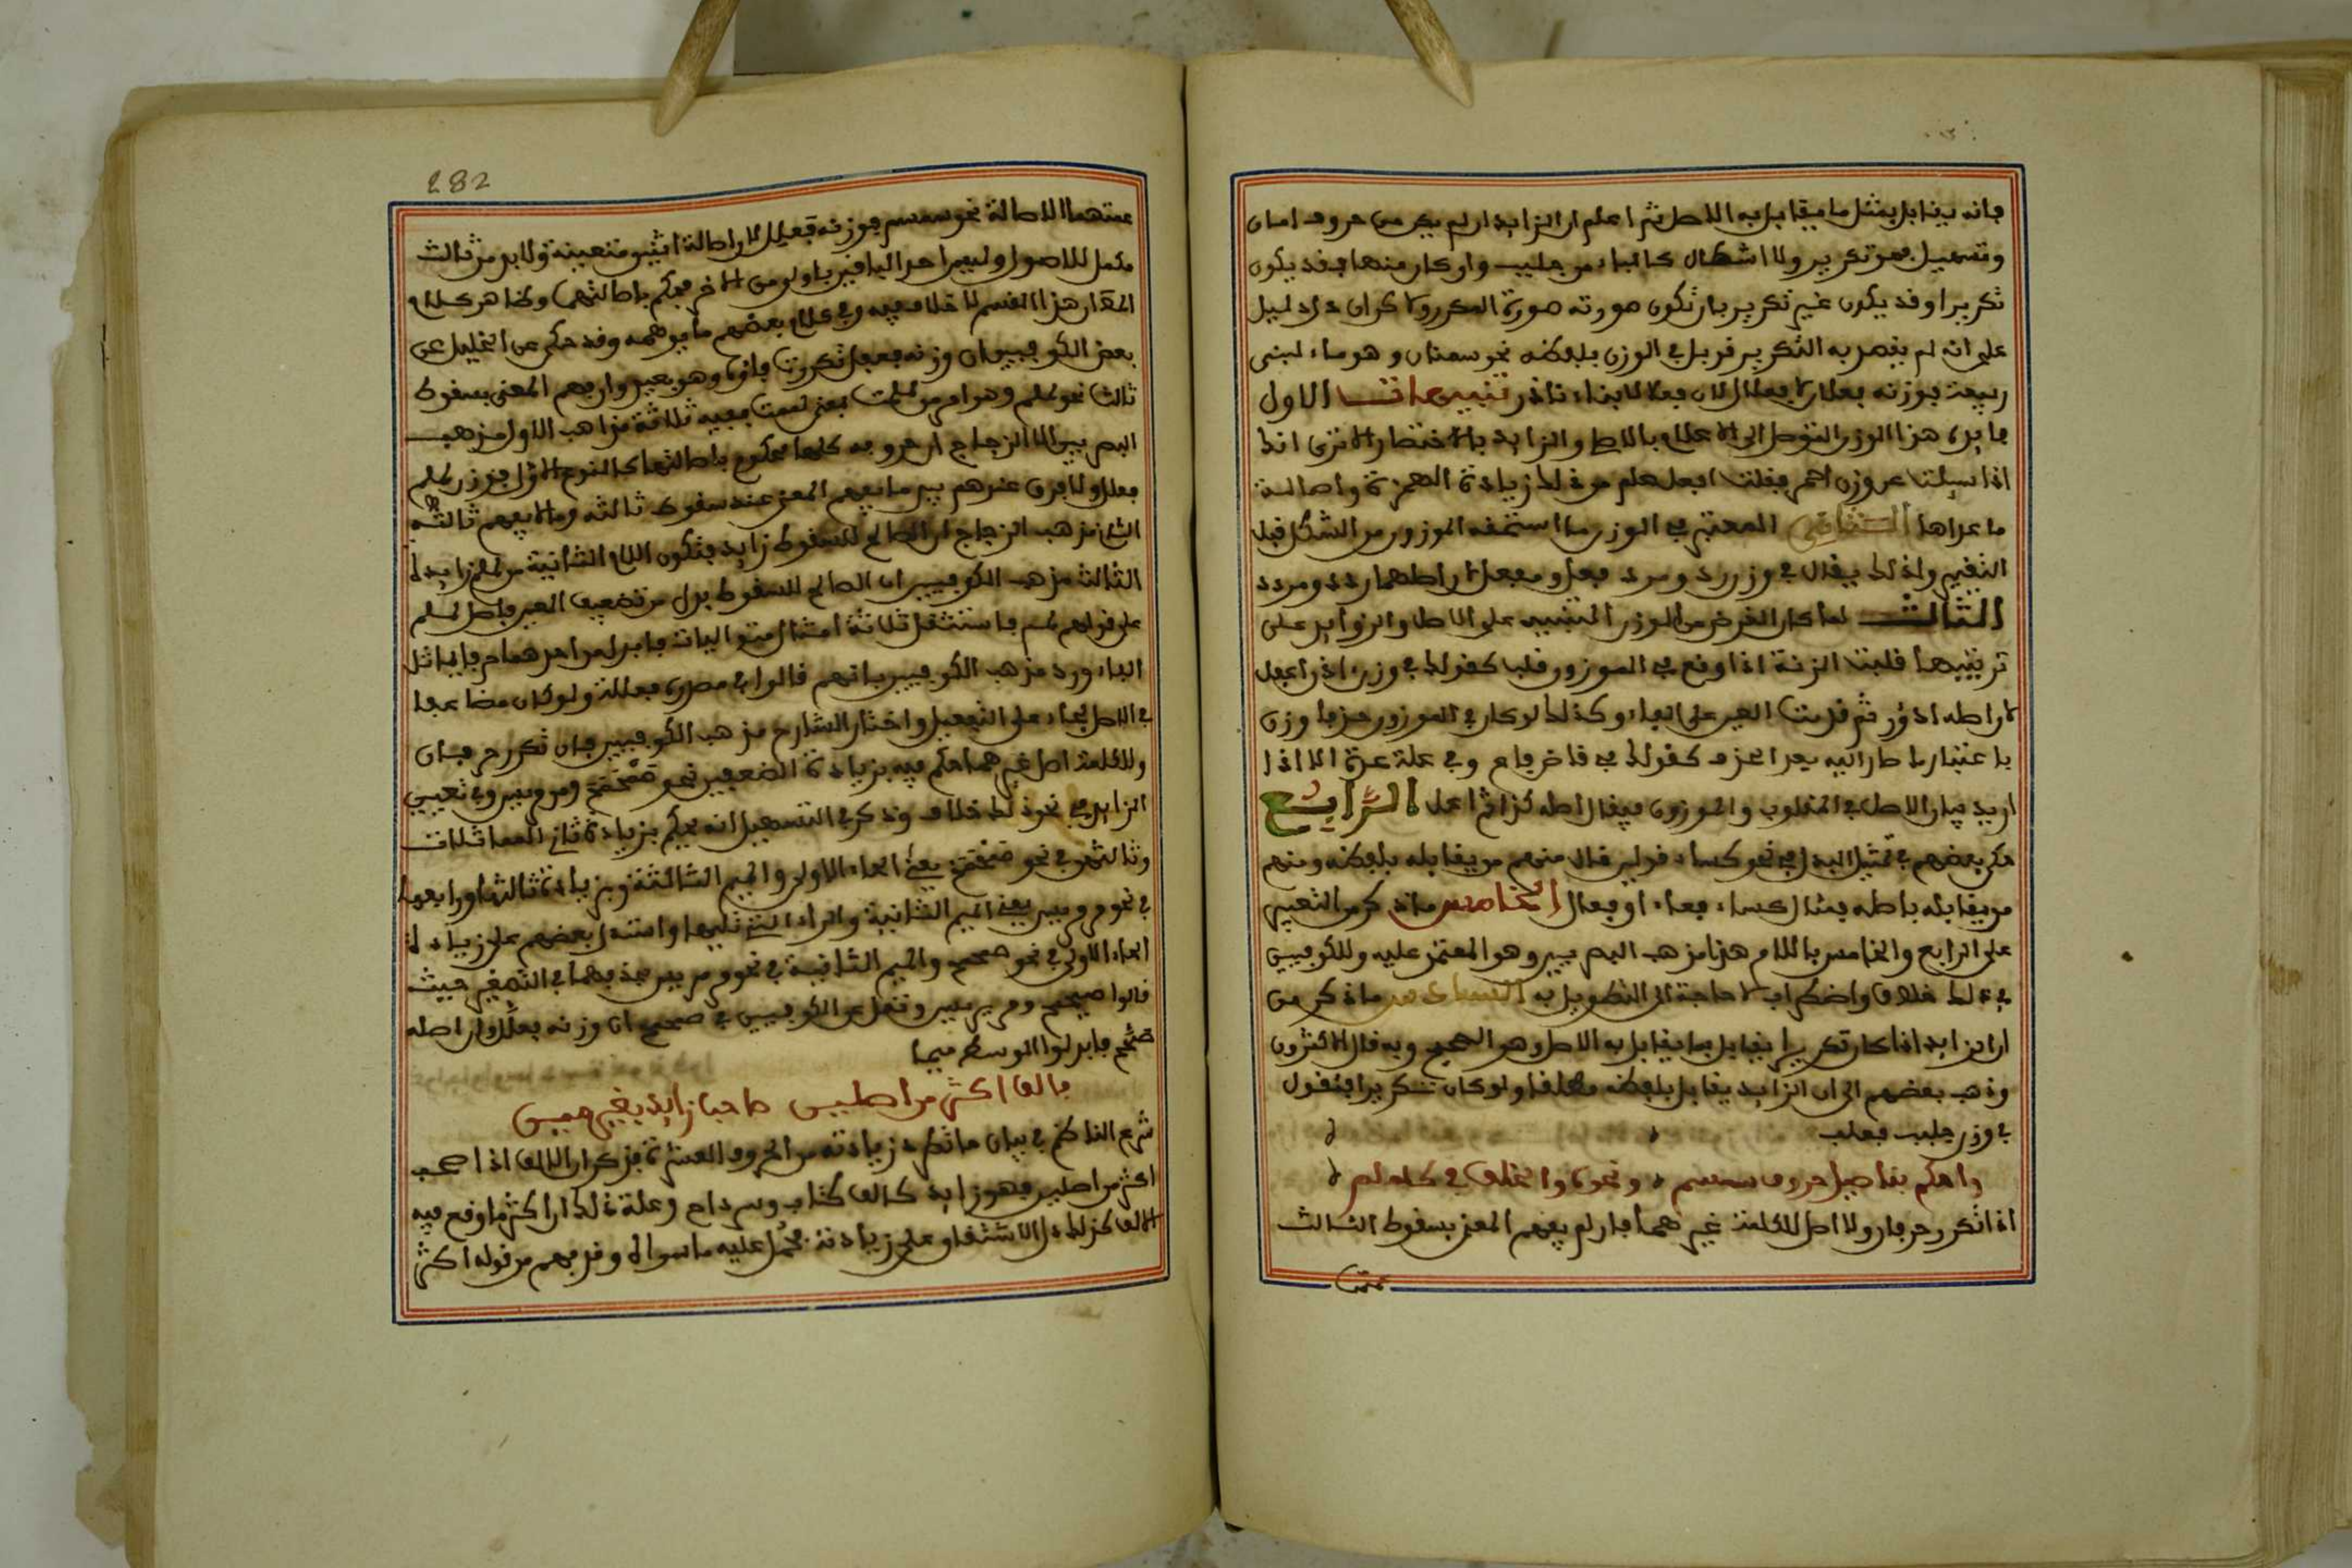 فإنه يقابل بمثل ما يقابل به الأصل ثم اعلم أن الزايد إن لم يكن من حروف أمان
وتسهيل فهو تكرير ولا إشكال كالباء من جلبب وإن كان منها فقد يكون
تكريرا وقد يكون غير تكرير بل تكون صورته صورة المكرر ولاكن دل دليل
على أنه لم يقصد به التكرير فربل في الوزن بلفظه نحو سمنان وهو ماء لبني
ربيعة فوزنه فعلان لا فعلال لأن فعلالا بناء نادر تنبيهات الأول
فايدة هذا الوزن التوصل إلى الاعلام بالأصل والزايد باختصار ألا ترى أنك
إذا سيلت عن وزن أحمر فقلت أفعل علم من ذلك زيادة الهمزة وأصالة
ما عداها الثاني المعتبر في الوزن ما استحقه الموزون من الشكل قبل
التغيير ولذلك يقال في وزن رد ومرد فعل ومفعل لأن أصلهما ردد ومردد
الثالث لما كان الغرض من الوزن التنبيه على الأصل والزوايد على
ترتيبها قلبت الزنة إذا وقع في الموزون قلب كقولك في وزن ءادر أعفل
لأن أصله أدؤر ثم قدمت العين على الفاء وكذلك لو كان في الموزون حذف وزن
باعتبار ما صار إليه بعد الحذف كقولك في قاض فاع وفي علة عدة إلا إذا
أريد بيان الأصل في المقلوب والموزون فيقال أصله كذا ثم أعل الرابع
حكى بعضهم في تمثيل البدل في نحو كساء قولين قال منهم من يقابله بلفظه ومنهم
من يقابله بأصله فمثل كساء فعاء أو فعال الخامس ما ذكر من التعبير
على الرابع والخامس باللام هذا مذهب البصريين وهو المعتمد عليه وللكوفيين
في ذلك خلاف واضطراب لا حاجة إلى التطويل به السادس ما ذكر من
أن الزايد إذا كان تكريرا يقابل بما يقابل به الأصل وهو الصحيح وبه قال الأكثرون
وذهب بعضهم إلى أن الزايد يقابل بلفظه مطلقا ولو كان تكريرا فتقول
في وزن جلبب فعلب
واحكم بتاصيل حروف سمسم ونحوه والخلف في كلملم
إذا تكرر حرفان ولا أصل للكلمة غيرهما فإن لم يفهم المعنى بسقوط الثالث
عمتهما
282
عمتهما الأصالة نحو سمسم فوزنه فعلل لأن أصالة اثنين متعينة ولا بد من ثالث
مكمل للأصول وليس أحد الباقيين بأولى من الآخر فيحكم بأصالتهما وظاهر كلامه
المقدار هذا القسم لا خلاف فيه وفي كلام بعضهم ما يوهمه وقد حكي عن الخليل عن
بعض الكوفيين أن وزنه فعفل تكررت فاؤه وهو بعيد وإن فهم المعنى بسقوط
ثالث نحو لملم وهو أمر من لملمت بمعنى لممت ففيه ثلاثة مذاهب الأول مذهب
البصريين إلا الزجاج أن حروفه كلها محكوم بأصالتها كالنوع الأول فوزن لملم
فعلل ولا فرق عندهم بين ما يفهم المعنى عند سقوط ثالثه وما لا يفهم ثالثه
الثاني مذهب الزجاج أن الصالح للسقوط زايد فتكون اللام الثانية من لملم زايدة
الثالث مذهب الكوفيين أن الصالح للسقوط بدل من تضعيف العين فأصل لملم
على قولهم لمم فاستثقل ثلاثة أمثال متواليات فابدل من أحدهما حرف يماثل
الفاء ورد مذهب الكوفيين بأنهم قالوا في مصدره فعللة ولو كان مضاعفا
في الأصل لجاء على التفعيل واختار الشارح مذهب الكوفيين فإن تكرر حرفان
وللكلمة أصل غيرهما حكم فيه بزيادة الضعيفين نحو صمحمح ومرمريس وفي تعيين
الزايد في نحو ذلك خلاف وذكر في التسهيل أنه يحكم بزيادة ثاني المماثلات
وثالثها في نحو صمحمح يعني الحاء الأولى والميم الثالثة وبزيادة ثالثها ورابعها
في نحو مرمريس يعني الميم الثانية والراء التي تليها واستدل بعضهم على زيادة
الحاء الأولى في نحو صمحمح والميم الثانية في نحو مرمريس بحذفهما في التصغير حيث
قالوا صميمح ومريريس ونقل عن الكوفيين في صمحمح أن وزنه فعلل وأن أصله
صمحح فابدلوا الوسطى ميما
فالف أكثر من أصلين صاحب زايد بغير مين
شرع الناظم في بيان ما تطرد زيادته من الحروف العشرة فذكر أن الألف إذا صحب
أكثر من أصلين فهو زايد كالف كتاب وسرداح وعلة ذلك أن أكثر ما وقع فيه
الألف كذلك دل الاشتقاق على زيادته فحمل عليه ما سواه وفهم من قوله أكثر